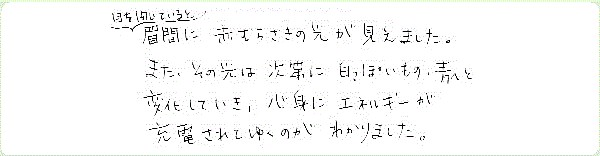 目を閉じていると、
眉間に赤むらさきの光が見えました。
また、その光は次第に白っぽいもの、青へと
変化していき、心身にエネルギーが
充電されてゆくのがわかりました。